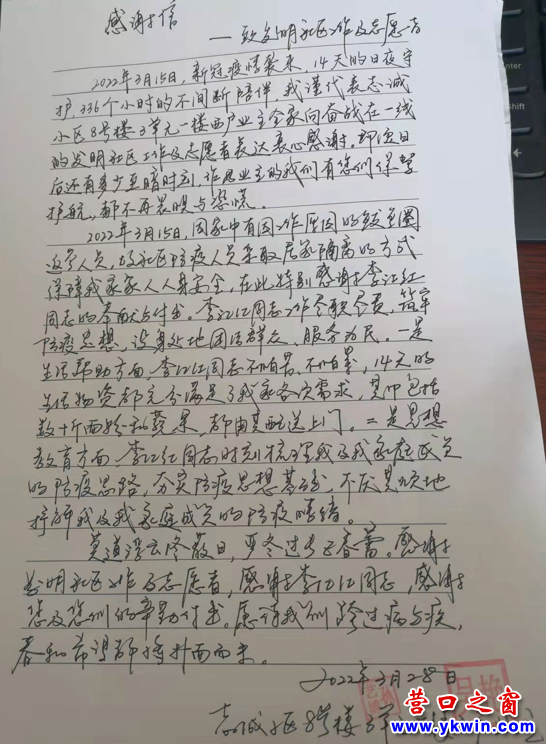 感谢信
——致发明社区工作及志愿者
2022年3月15日,新冠疫情袭来,14天的日夜守
护,336个小时的不间断陪伴,我谨代表志诚
小区8号楼3单元一楼西户业主全家向奋战在一线
的发明社区工作及志愿者表达衷心感谢,即次日
后还有多少至暗时刻,作为业主的我们有您们保驾
护航,都不再畏惧与恐慌。
2022年3月15日,因家中有因工作原因的鲅鱼圈
返营人员,故社区防疫人员采取居家隔离的方式
保障我家家人人身安全,在此特别感谢李江红
同志的奉献与付出。李江红同志工作尽职尽责,筑牢
防疫思想,设身处地团结群众、服务为民。一是
生活帮助方面,李江红同志不怕苦、不怕累,14天的
生活物资都充分满足了我家各次需求,其中包括
数十斤面粉和蔬果,都由其配送上门。二是思想
教育方面,李江红同志时刻梳理我及我家庭成员
的防疫思路,夯实防疫思想基础,不厌其烦地
排解我及我家庭成员的防疫情绪。
莫道浮云终蔽日,严冬过尽春蕾。感谢
发明社区工作及志愿者,感谢李江红同志,感谢
您及您们的辛勤付出。愿待我们跨过病与疾,
春和希望都将扑面而来。
2022年3月28日
志诚小区8号楼3单
营口之窗
www.ykwin.com